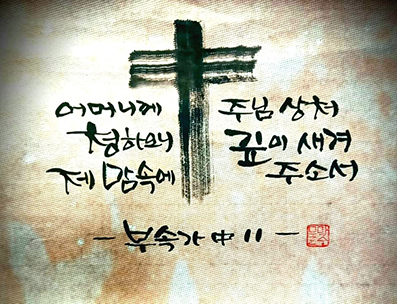 어머니께
청하오니
제 맘속에
주님 상처
깊이 새겨
주소서
- 부속가 中 11 -